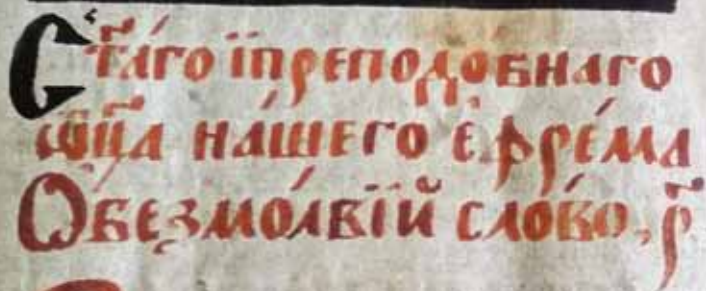 Ст҃а́го і҆преподо́бнаго
ѿц҃а на́шего е҆фре́ма
Ѡ҆безмо́лвїй сло́во, р҃